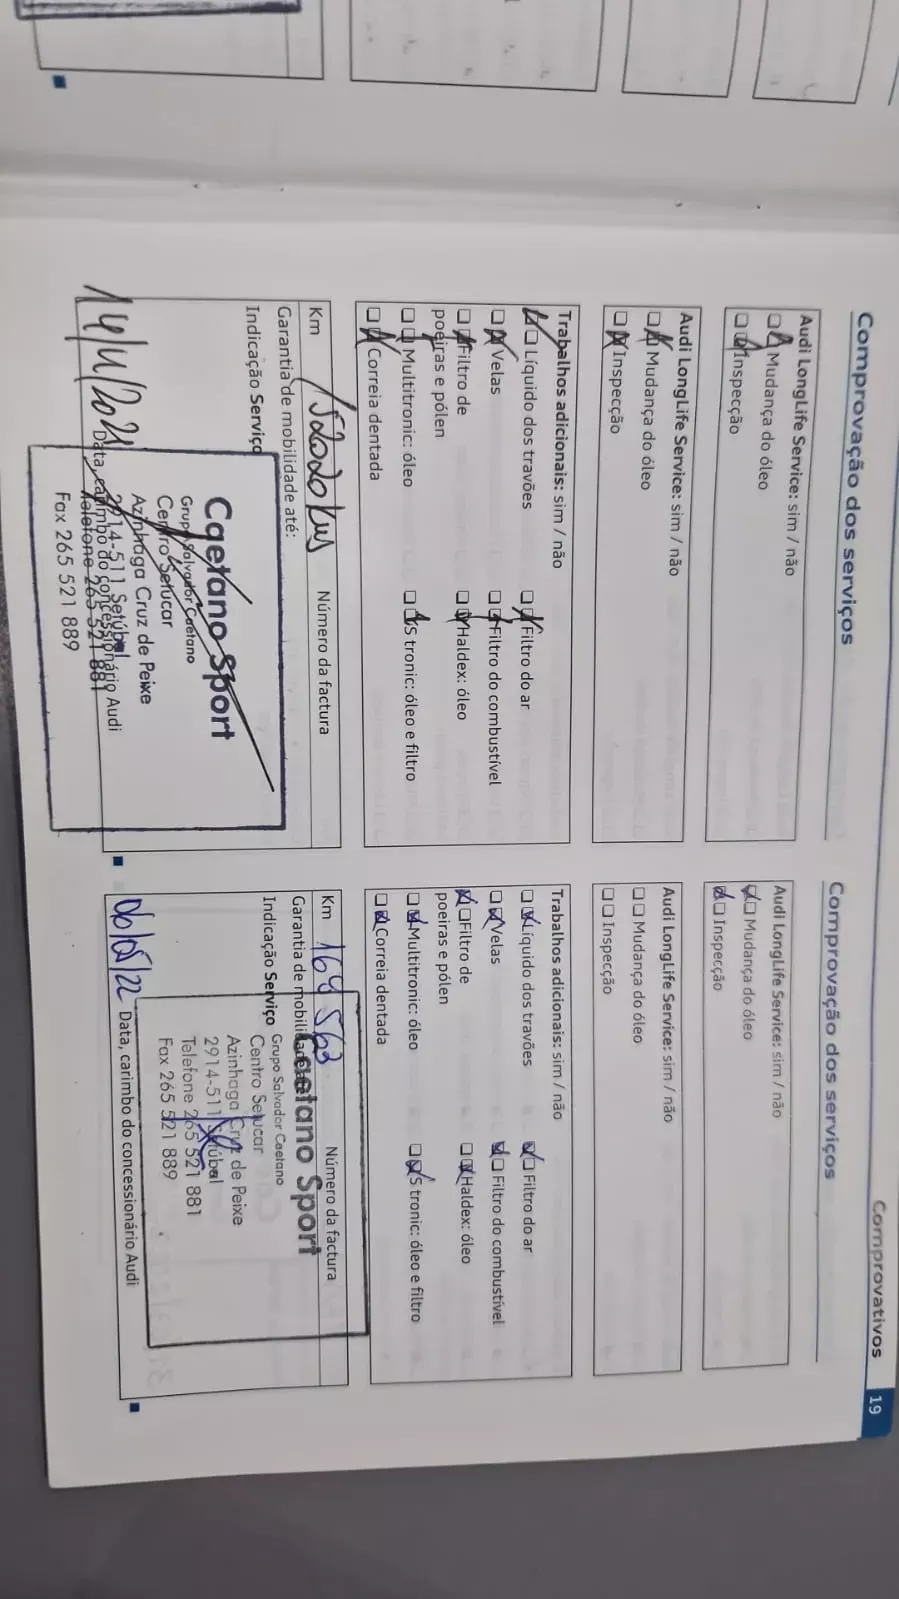 Comprovativos 19
Comprovação dos serviços
Audi LongLife Service: sim / não
Mudança do óleo
Inspecção
Audi LongLife Service: sim / não
Mudança do óleo
Inspecção
Trabalhos adicionais: sim / não
Líquido dos travões Filtro do ar
Velas Filtro do combustível
Filtro de Haldex: óleo
poeiras e pólen
Multitronic: óleo S tronic: óleo e filtro
Correia dentada
Km 152020 kms Número da factura
Garantia de mobilidade até:
Indicação Serviço
Caetano Sport
Grupo Salvador Caetano
Centro Setucar
Azinhaga Cruz de Peixe
2914-511 Setúbal
Telefone 265 521 881
Fax 265 521 889
Data, carimbo do concessionário Audi
Comprovação dos serviços
Audi LongLife Service: sim / não
Mudança do óleo
Inspecção
Audi LongLife Service: sim / não
Mudança do óleo
Inspecção
Trabalhos adicionais: sim / não
Líquido dos travões Filtro do ar
Velas Filtro do combustível
Filtro de Haldex: óleo
poeiras e pólen
Multitronic: óleo S tronic: óleo e filtro
Correia dentada
Km Número da factura
Garantia de
Indicação Serviço
Caetano Sport
Grupo Salvador Caetano
Centro Setucar
Azinhaga Cruz de Peixe
2914-511 Setúbal
Telefone 265 521 881
Fax 265 521 889
06/05/22 Data, carimbo do concessionário Audi